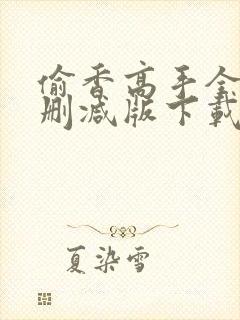 偷香高手全
删减版下载
夏染雪